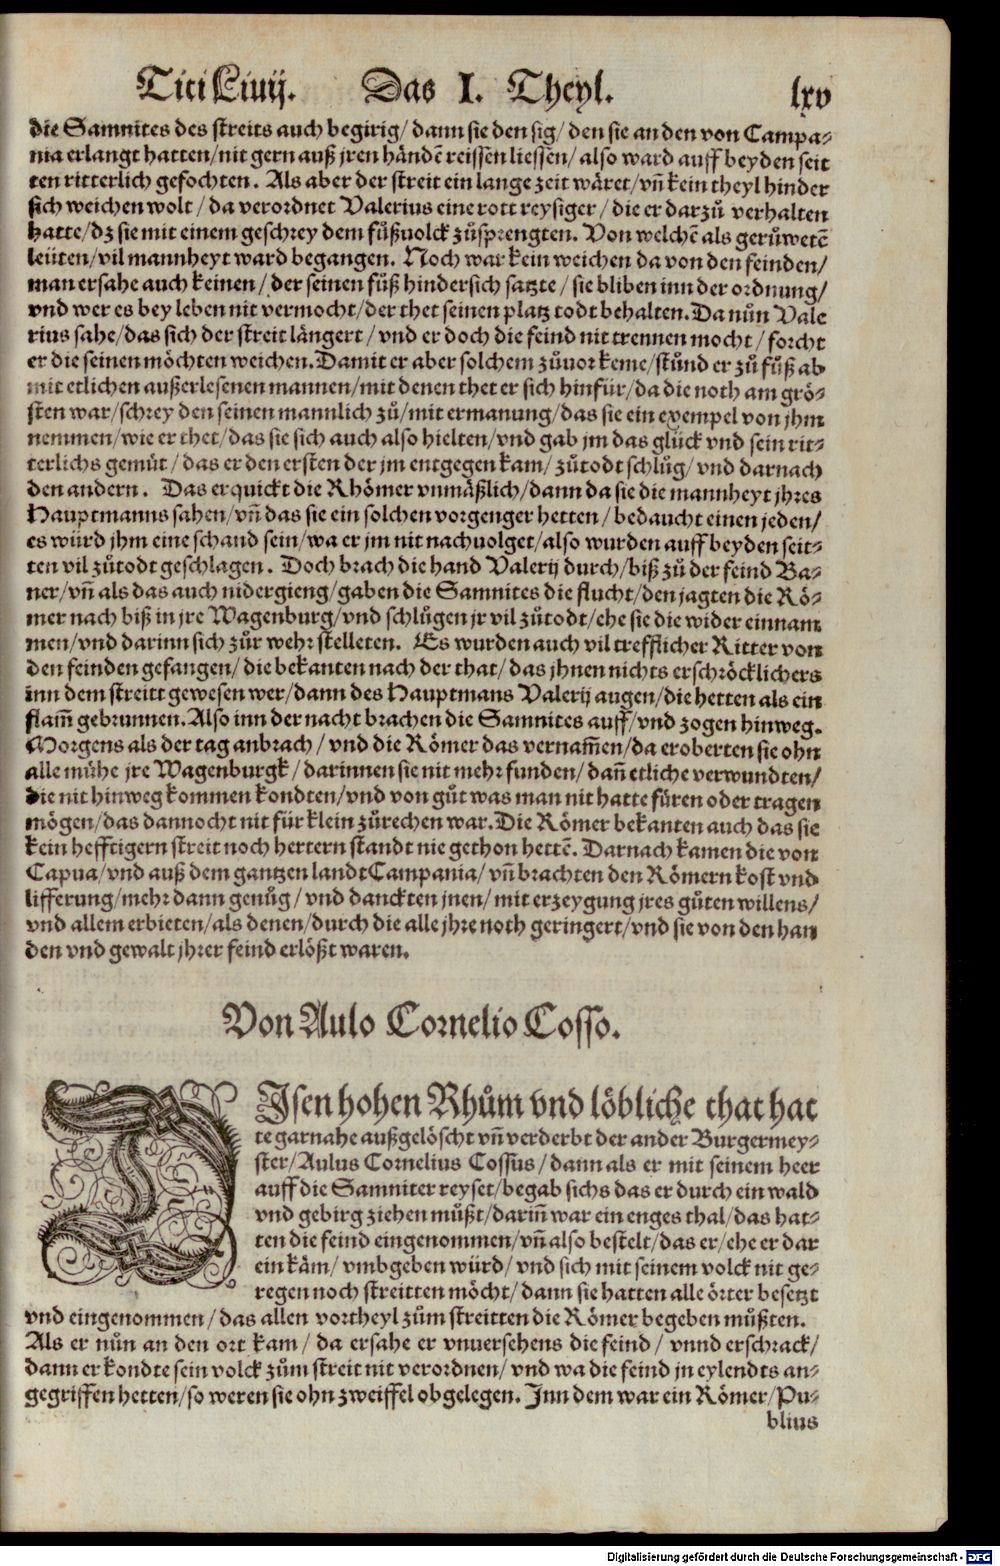 Titi Liuij. Das I. Theyl. lxv
die Samnites des streits auch begirig/ dann sie den sig/ den sie an den von Campa⸗
nia erlangt hatten/ nit gern auß jren händē reissen liessen/ also ward auff beyden seit
ten ritterlich gefochten. Als aber der streit ein lange zeit wäret/ vñ kein theyl hinder
sich weichen wolt/ da verordnet Valerius eine rott reysiger/ die er darzů verhalten
hatte/ dz sie mit einem geschrey dem fůßuolck zůsprengten. Von welchē als gerůwetē
leüten/ vil mannheyt ward begangen. Noch war kein weichen da von den feinden/
man ersahe auch keinen/ der seinen fůß hindersich satzte/ sie bliben inn der ordnung/
vnd wer es bey leben nit vermocht/ der thet seinen platz todt behalten. Da nůn Vale
rius sahe/ das sich der streit längert/ vnd er doch die feind nit trennen mocht/ forcht
er die seinen möchten weichen. Damit er aber solchem zůuor keme/ stůnd er zů fůß ab
mit etlichen außerlesenen mannen/ mit denen thet er sich hinfür/ da die noth am grö⸗
sten war/ schrey den seinen mannlich zů/ mit ermanung/ das sie ein exempel von jhm
nemmen/ wie er thet/ das sie sich auch also hielten/ vnd gab jm das glück vnd sein rit⸗
terlichs gemüt/ das er den ersten der jm entgegen kam/ zůtodt schlůg/ vnd darnach
den andern. Das erquickt die Rhömer vnmäßlich/ dann da sie die mannheyt jhres
Hauptmanns sahen/ vñ das sie ein solchen vorgenger hetten/ bedaucht einen jeden/
es würd jhm eine schand sein/ wa er jm nit nachuolget/ also wurden auff beyden seit⸗
ten vil zůtodt geschlagen. Doch brach die hand Valerij durch/ biß zů der feind Ba⸗
ner/ vñ als das auch nidergieng/ gaben die Samnites die flucht/ den jagten die Rö⸗
mer nach biß in jre Wagenburg/ vnd schlůgen jr vil zůtodt/ ehe sie die wider einnam
men/ vnd darinn sich zůr wehr stelleten. Es wurden auch vil trefflicher Ritter von
den feinden gefangen/ die bekanten nach der that/ das jhnen nichts erschröcklichers
inn dem streitt gewesen wer/ dann des Hauptmans Valerij augen/ die hetten als ein
flam̃ gebrunnen. Also inn der nacht brachen die Samnites auff/ vnd zogen hinweg.
Morgens als der tag anbrach/ vnd die Römer das vernam̃en/ da eroberten sie ohn
alle mühe jre Wagenburgk/ darinnen sie nit mehr funden/ dañ etliche verwundten/
die nit hinweg kommen kondten/ vnd von gůt was man nit hatte füren oder tragen
mögen/ das dannocht nit für klein zůrechen war. Die Römer bekanten auch das sie
kein hefftigern streit noch hertern standt nie gethon hettē. Darnach kamen die von
Capua/ vnd auß dem gantzen landt Campania/ vñ brachten den Römern kost vnd
lifferung/ mehr dann genůg/ vnd danckten jnen/ mit erzeygung jres gůten willens/
vnd allem erbieten/ als denen/ durch die alle jhre noth geringert/ vnd sie von den han
den vnd gewalt jhrer feind erlößt waren.
Von Aulo Cornelio Cosso.
DIsen hohen Rhům vnd löbliche that hat
te garnahe außgelöscht vñ verderbt der ander Burgermey⸗
ster/ Aulus Cornelius Cossus/ dann als er mit seinem heer
auff die Samniter reyset/ begab sichs das er durch ein wald
vnd gebirg ziehen müßt/ darin̄ war ein enges thal/ das hat⸗
ten die feind eingenommen/ vñ also bestelt/ das er/ ehe er dar
ein käm/ vmbgeben würd/ vnd sich mit seinem volck nit ge⸗
regen noch streitten möcht/ dann sie hatten alle örter besetzt
vnd eingenommen/ das allen vortheyl zům streitten die Römer begeben můßten.
Als er nůn an den ort kam/ da ersahe er vnuersehens die feind/ vnnd erschrack/
dann er kondte sein volck zům streit nit verordnen/ vnd wa die feind jn eylendts an⸗
gegriffen hetten/ so weren sie ohn zweiffel obgelegen. Inn dem war ein Römer/ Pu⸗
blius
Digitalisierung gefördert durch die Deutsche Forschungsgemeinschaft - DFG